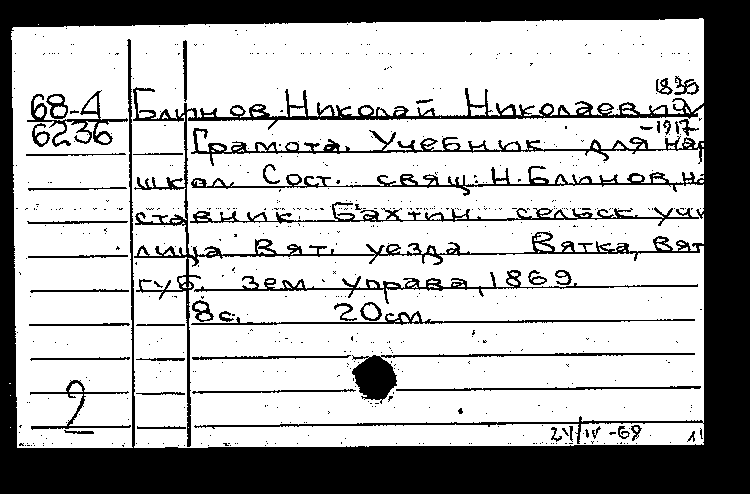 68-4 Блинов, Николай Николаевич 1836
6236 -1917
Грамота. Учебник для нар
школ. Сост. свящ. Н. Блинов, на
ставник Бахтин. сельск. учи
лища Вят. уезда. Вятка, Вят
губ. зем. управа, 1869.
8 с. 20 см.
2